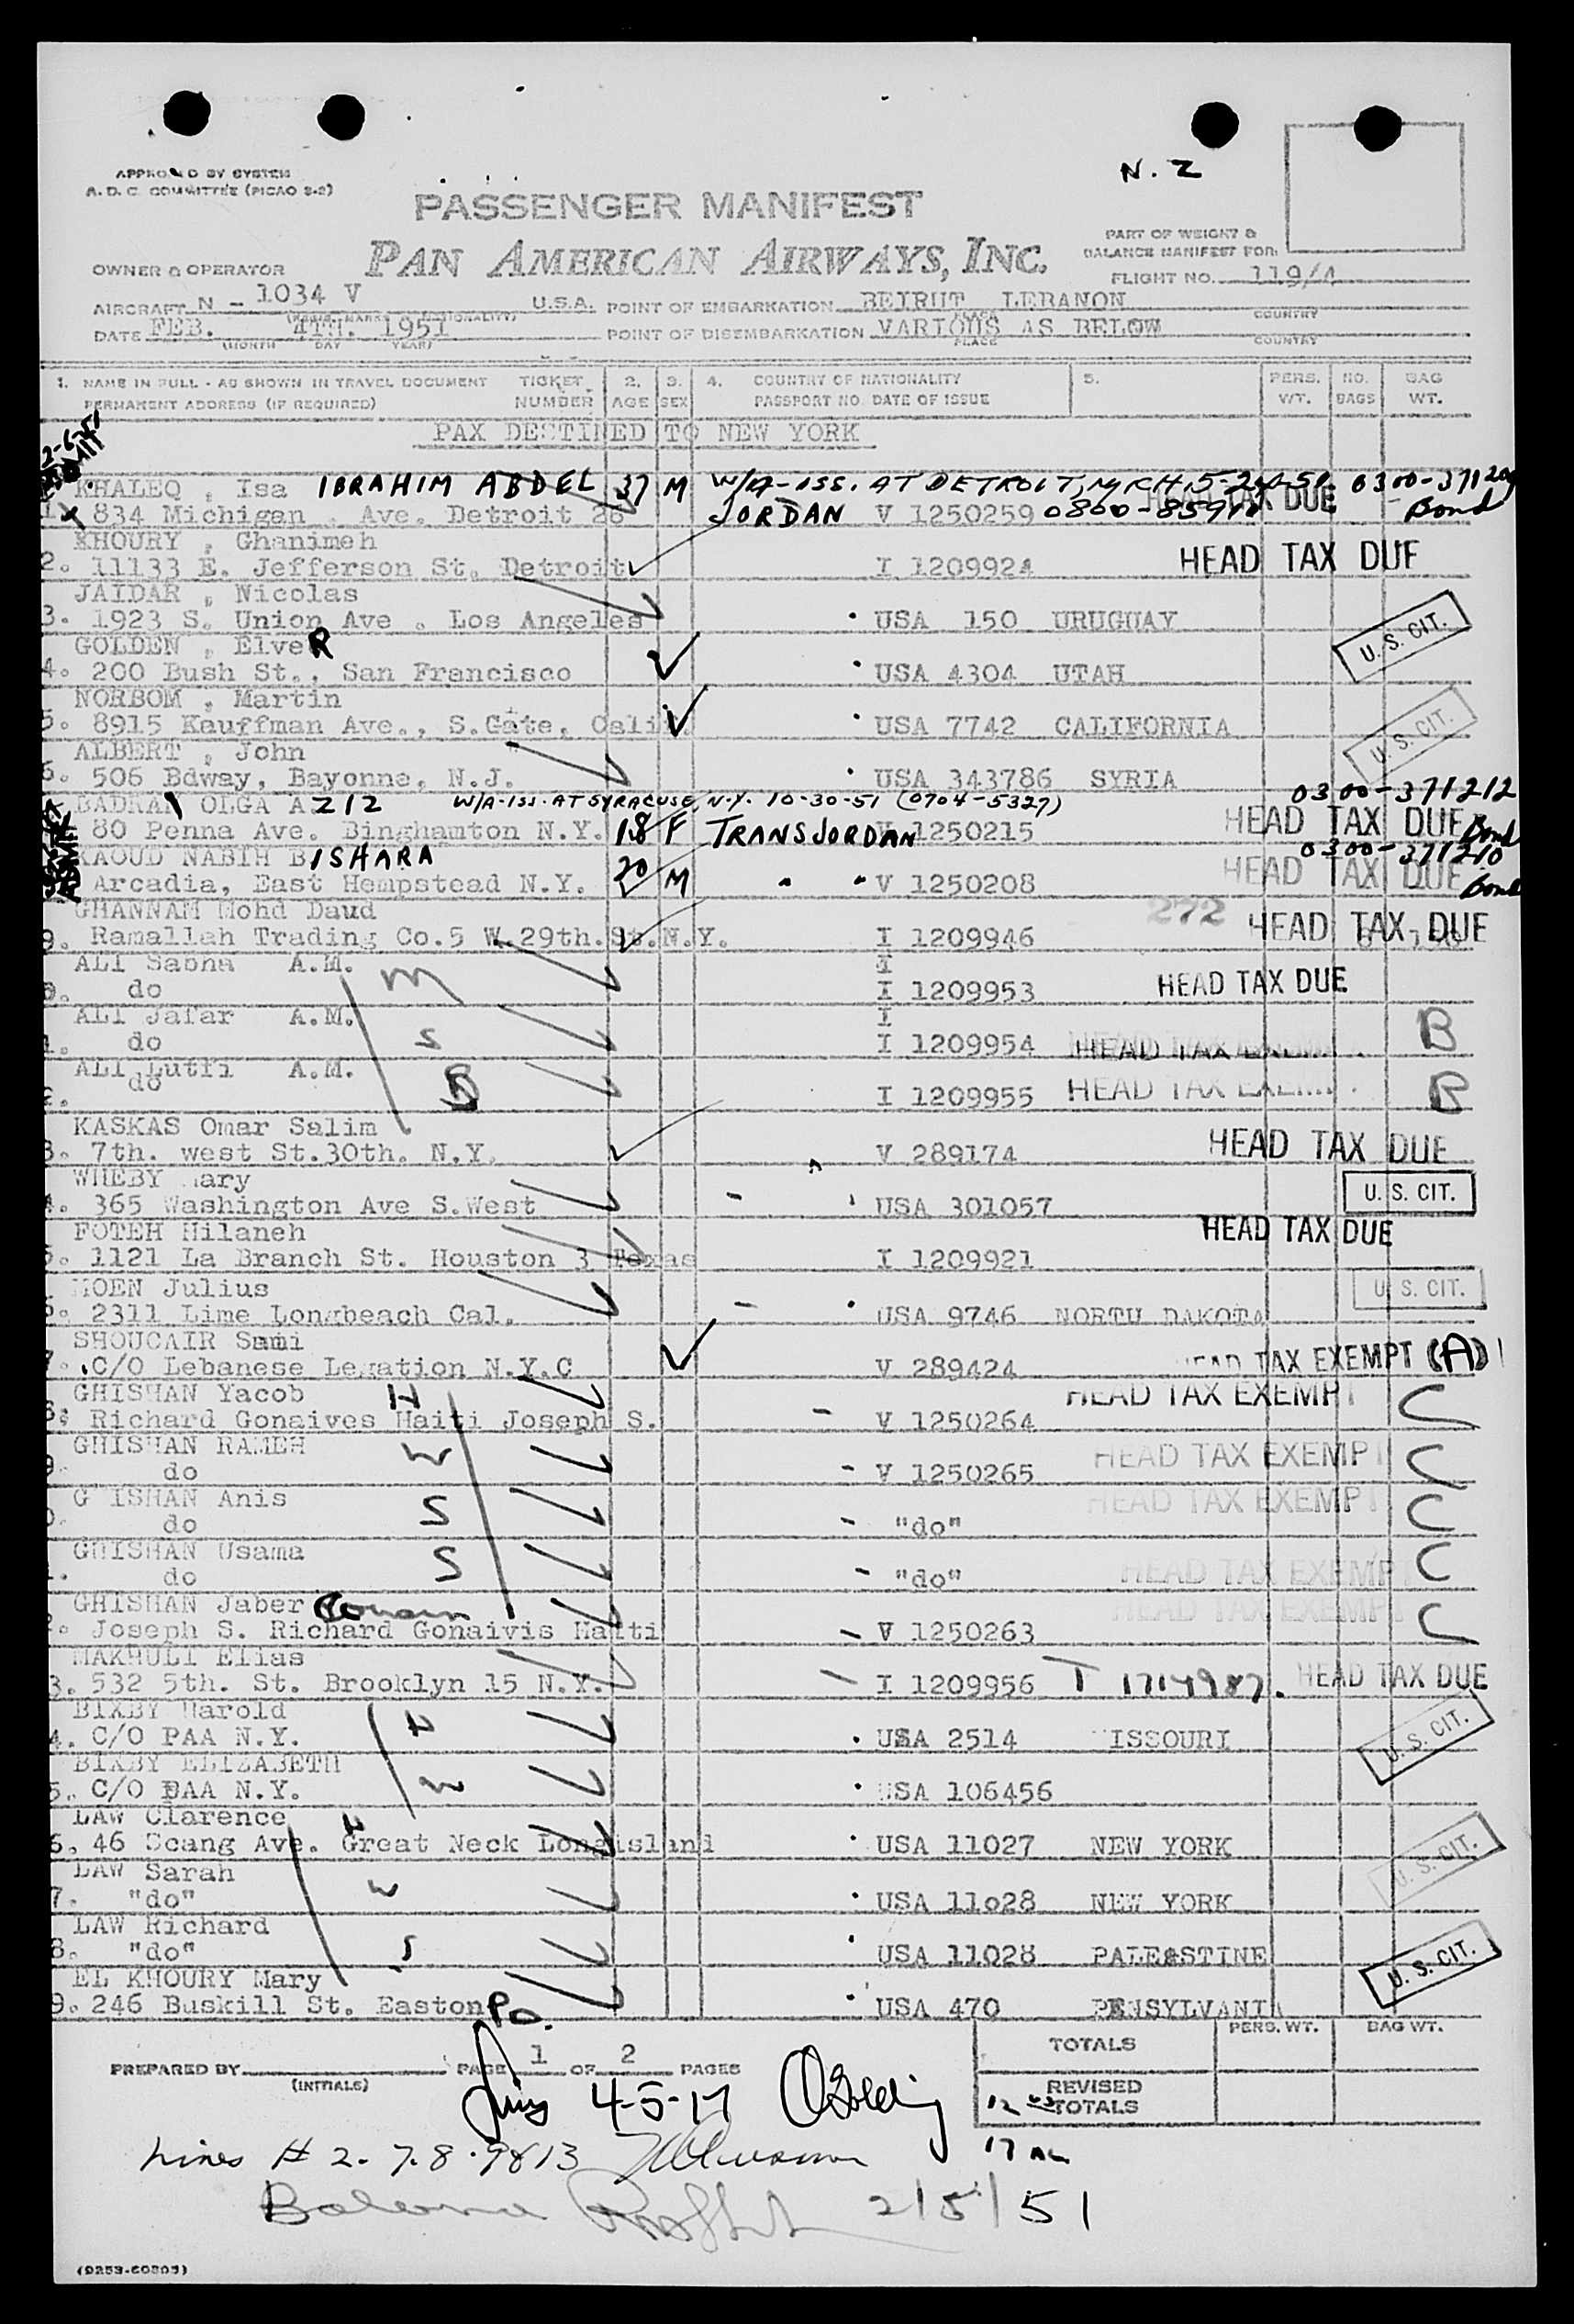 N. Z
APPROVED BY SYSTEM
A. D. C. COMMITTEE (PICAO 8-2)
PASSENGER MANIFEST
PAN AMERICAN AIRWAYS, INC.
PART OF WEIGHT &
BALANCE MANIFEST FOR:
OWNER & OPERATOR
FLIGHT NO. 119/4
AIRCRAFT N - 1034 V U.S.A. POINT OF EMBARKATION BEIRUT LEBANON
PLACE COUNTRY
DATE FEB. 4TH. 1951 POINT OF DISEMBARKATION VARIOUS AS BELOW
(MONTH DAY YEAR) PLACE COUNTRY
1. NAME IN FULL - AS SHOWN IN TRAVEL DOCUMENT TICKET 2. 3. 4. COUNTRY OF NATIONALITY 5. PERS. NO. BAG
PERMANENT ADDRESS (IF REQUIRED) NUMBER AGE SEX PASSPORT NO. DATE OF ISSUE WT. BAGS WT.
PAX DESTINED TO NEW YORK
KHALEQ , Isa IBRAHIM ABDEL 37 M W/A-ISS. AT DETROIT, MICH. 0300-371209
834 Michigan . Ave. Detroit 26 JORDAN V 1250259 HEAD TAX DUE Bond
KHOURY , Ghanimeh
2. 11133 E. Jefferson St. Detroit I 1209924 HEAD TAX DUE
JAIDAR , Nicolas
3. 1923 S. Union Ave . Los Angeles USA 150 URUGUAY U. S. CIT.
GOLDEN , ElveR
4. 200 Bush St., San Francisco USA 4304 UTAH
NORBOM , Martin
5. 8915 Kauffman Ave., S.Gate, Calif. USA 7742 CALIFORNIA U. S. CIT.
ALBERT , John
6. 506 Bdway, Bayonne, N.J. USA 343786 SYRIA
BADRAN OLGA AZIZ W/A-ISS. AT SYRACUSE, N.Y. 10-30-51 (0704-5327) 0300-371212
80 Penna Ave. Binghamton N.Y. 18 F TRANSJORDAN 1250215 HEAD TAX DUE Bond
KAOUD NABIH BISHARA 0300-371210
Arcadia, East Hempstead N.Y. 20 M " " V 1250208 HEAD TAX DUE Bond
GHANNAM Mohd Daud 272
9. Ramallah Trading Co.5 W.29th.St.N.Y. I 1209946 HEAD TAX DUE
ALI Sabha A.M. m
do I 1209953 HEAD TAX DUE
ALI Jafar A.M. I
do S I 1209954 HEAD TAX EXEMPT B
ALI Lutfi A.M. S
do I 1209955 HEAD TAX EXEMPT B
KASKAS Omar Salim
3. 7th. west St.30th. N.Y. V 289174 HEAD TAX DUE
WHEBY Mary
4. 365 Washington Ave S.West USA 301057 U. S. CIT.
FOTEH Hilaneh
5. 1121 La Branch St. Houston 3 Texas I 1209921 HEAD TAX DUE
MOEN Julius
6. 2311 Lime Longbeach Cal. USA 9746 NORTU DAKOTA U. S. CIT.
SHOUCAIR Sami
7. C/O Lebanese Legation N.Y.C V 289424 HEAD TAX EXEMPT (A)
GHISHAN Yacob H
8. Richard Gonaives Haiti Joseph S. V 1250264 HEAD TAX EXEMPT C
GHISHAN RAMEH W
9. do V 1250265 HEAD TAX EXEMPT C
GHISHAN Anis S
do "do" HEAD TAX EXEMPT C
GHISHAN Usama S
do "do" HEAD TAX EXEMPT C
GHISHAN Jaber Cousin
Joseph S. Richard Gonaivis Haiti V 1250263 HEAD TAX EXEMPT C
MAKHULI Elias
3. 532 5th. St. Brooklyn 15 N.Y. I 1209956 T 1714987. HEAD TAX DUE
BIXBY Harold H
4. C/O PAA N.Y. USA 2514 MISSOURI U. S. CIT.
BIXBY ELIZABETH
5. C/O PAA N.Y. W USA 106456
LAW Clarence H
6. 46 Scang Ave. Great Neck Longisland USA 11027 NEW YORK U. S. CIT.
LAW Sarah
7. "do" W USA 11o28 NEW YORK
LAW Richard
8. "do" S USA 11028 PALEASTINE U. S. CIT.
EL KHOURY Mary
9. 246 Buskill St. Easton Pa. USA 470 PENSYLVANIA
PREPARED BY (INITIALS) PAGE 1 OF 2 PAGES
TOTALS PERS. WT. BAG WT.
REVISED TOTALS
4-5-17
Lines # 2. 7. 8. 9 & 13
2/5/51